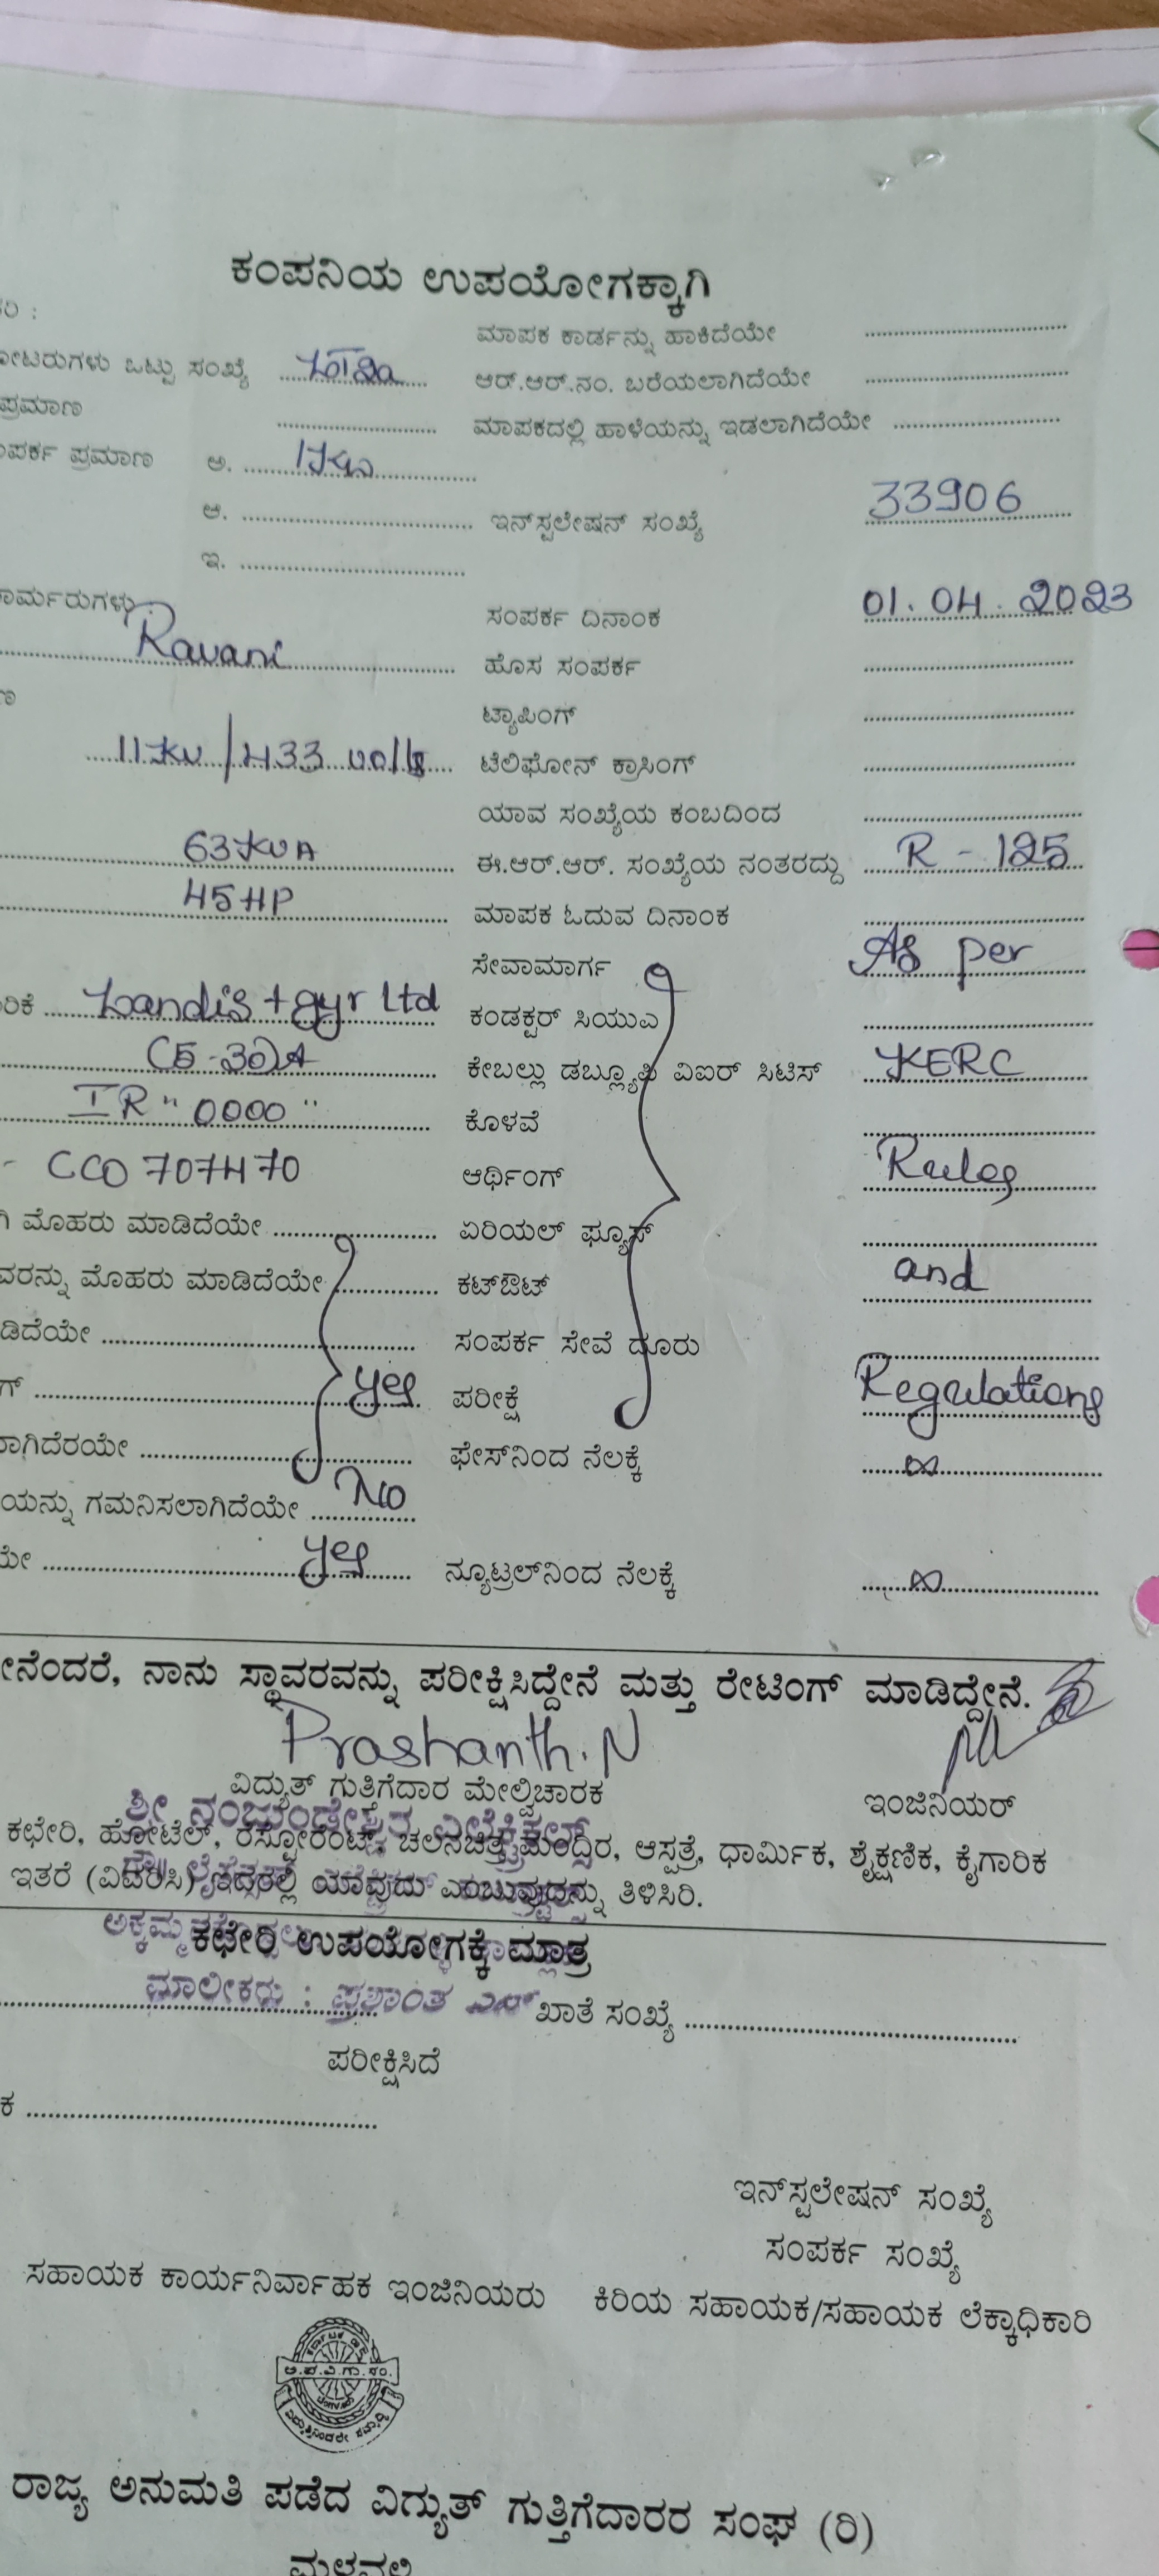 ಕಂಪನಿಯ ಉಪಯೋಗಕ್ಕಾಗಿ
ಮಾಪಕ ಕಾರ್ಡನ್ನು ಹಾಕಿದೆಯೇ
ಒಟ್ಟು ಸಂಖ್ಯೆ ಆರ್.ಆರ್.ನಂ. ಬರೆಯಲಾಗಿದೆಯೇ
ಪ್ರಮಾಣ ಮಾಪಕದಲ್ಲಿ ಹಾಳೆಯನ್ನು ಇಡಲಾಗಿದೆಯೇ
ಪ್ರಮಾಣ ಅ. 1Kw
ಆ. ಇನ್‌ಸ್ಟಲೇಷನ್ ಸಂಖ್ಯೆ 33906
ಇ.
ಸಂಪರ್ಕ ದಿನಾಂಕ 01.04.2023
Ravani ಹೊಸ ಸಂಪರ್ಕ
ಟ್ಯಾಪಿಂಗ್
11Kv/433 volts ಟೆಲಿಫೋನ್ ಕ್ರಾಸಿಂಗ್
ಯಾವ ಸಂಖ್ಯೆಯ ಕಂಬದಿಂದ
63KVA ಈ.ಆರ್.ಆರ್. ಸಂಖ್ಯೆಯ ನಂತರದ್ದು R - 125
45HP ಮಾಪಕ ಓದುವ ದಿನಾಂಕ
ಸೇವಾಮಾರ್ಗ As per
Landis + gyr Ltd ಕಂಡಕ್ಟರ್ ಸಿಯುಎ
(5-30)A ಕೇಬಲ್ಲು ಡಬ್ಲ್ಯೂಪಿ ವಿಐರ್ ಸಿಟಿಸ್ KERC
IR "0000" ಕೊಳವೆ
- CCO 707470 ಆರ್ಥಿಂಗ್ Rules
ಮೊಹರು ಮಾಡಿದೆಯೇ ಏರಿಯಲ್ ಫ್ಯೂಸ್
ಮೊಹರು ಮಾಡಿದೆಯೇ ಕಟ್‌ಔಟ್ and
ಸಂಪರ್ಕ ಸೇವೆ ದೂರು
yes ಪರೀಕ್ಷೆ Regulations
ಫೇಸ್‌ನಿಂದ ನೆಲಕ್ಕೆ ∞
ಗಮನಿಸಲಾಗಿದೆಯೇ No
yes ನ್ಯೂಟ್ರಲ್‌ನಿಂದ ನೆಲಕ್ಕೆ ∞
ನಾನು ಸ್ಥಾವರವನ್ನು ಪರೀಕ್ಷಿಸಿದ್ದೇನೆ ಮತ್ತು ರೇಟಿಂಗ್ ಮಾಡಿದ್ದೇನೆ.
Prashanth.N
ವಿದ್ಯುತ್ ಗುತ್ತಿಗೆದಾರ ಮೇಲ್ವಿಚಾರಕ ಇಂಜಿನಿಯರ್
ಶ್ರೀ ನಂಜುಂಡೇಶ್ವರ ಎಲೆಕ್ಟ್ರಿಕಲ್ಸ್
ಕಛೇರಿ, ಹೋಟೆಲ್, ರೆಸ್ಟೋರೆಂಟ್, ಚಲನಚಿತ್ರ ಮಂದಿರ, ಆಸ್ಪತ್ರೆ, ಧಾರ್ಮಿಕ, ಶೈಕ್ಷಣಿಕ, ಕೈಗಾರಿಕ
ಇತರೆ (ವಿವರಿಸಿ) ಇದರಲ್ಲಿ ಯಾವುದು ಎಂಬುವುದನ್ನು ತಿಳಿಸಿರಿ.
ಕಛೇರಿ ಉಪಯೋಗಕ್ಕೆ ಮಾತ್ರ
ಮಾಲೀಕರು : ಪ್ರಶಾಂತ ಎನ್ ಖಾತೆ ಸಂಖ್ಯೆ
ಪರೀಕ್ಷಿಸಿದೆ
ಇನ್‌ಸ್ಟಲೇಷನ್ ಸಂಖ್ಯೆ
ಸಂಪರ್ಕ ಸಂಖ್ಯೆ
ಸಹಾಯಕ ಕಾರ್ಯನಿರ್ವಾಹಕ ಇಂಜಿನಿಯರು ಕಿರಿಯ ಸಹಾಯಕ/ಸಹಾಯಕ ಲೆಕ್ಕಾಧಿಕಾರಿ
ಅ.ಪ.ವಿ.ಗು.ಸಂ.
ರಾಜ್ಯ ಅನುಮತಿ ಪಡೆದ ವಿದ್ಯುತ್ ಗುತ್ತಿಗೆದಾರರ ಸಂಘ (ರಿ)